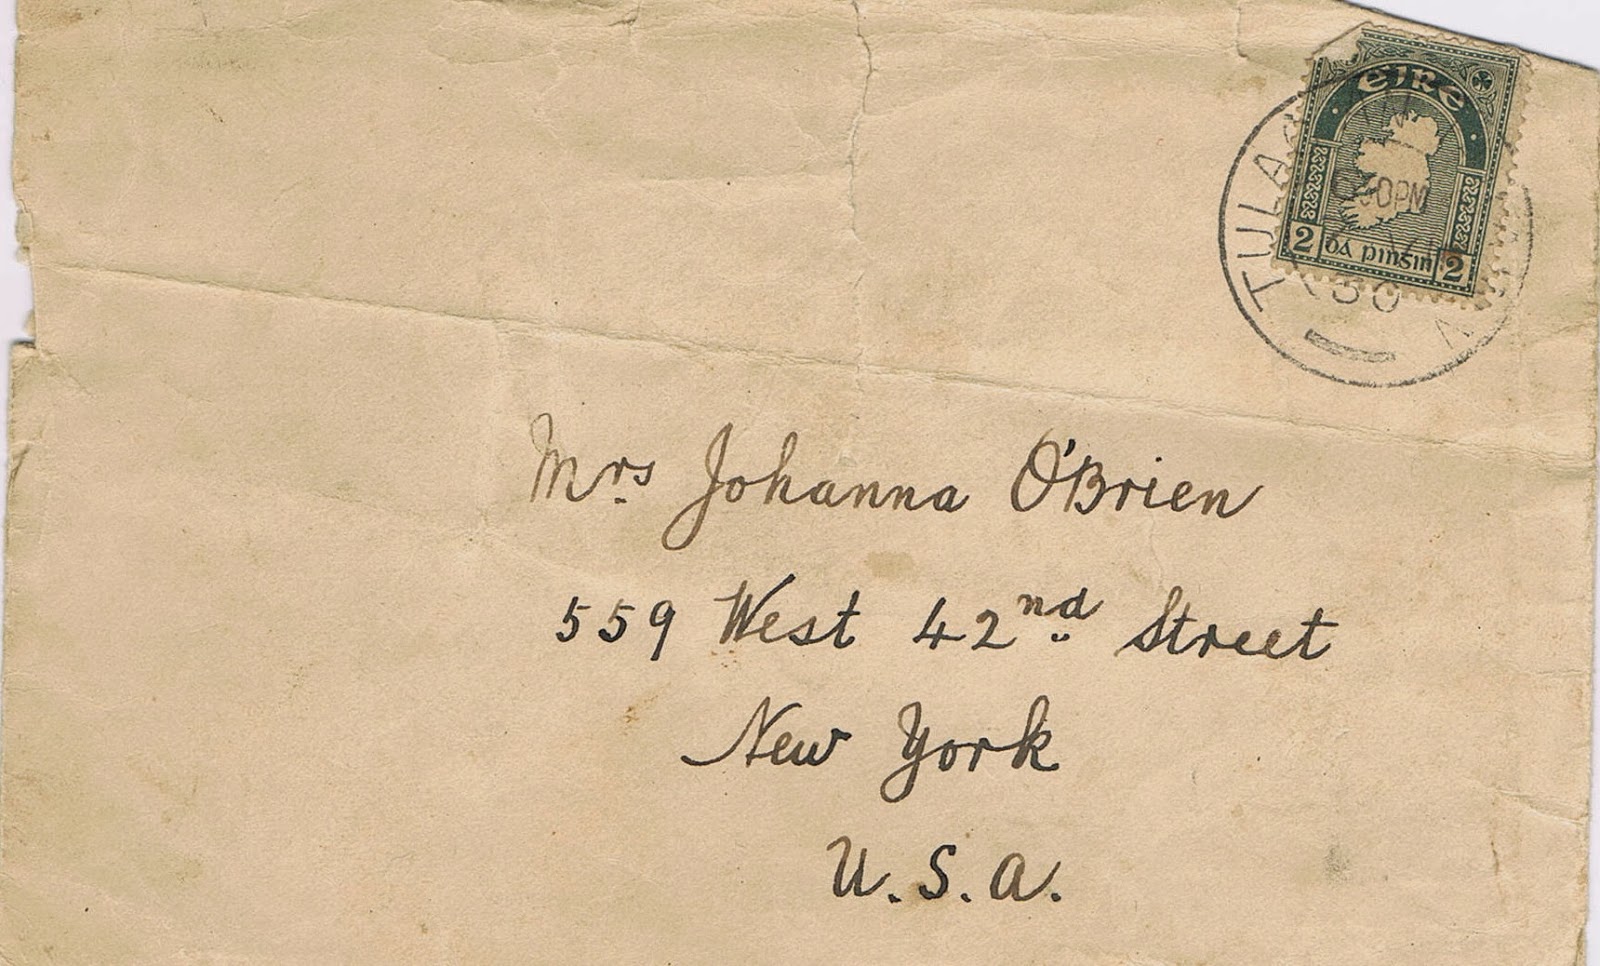 éire
2 dá pinġin 2
30
Mrs Johanna O'Brien
559 West 42nd Street
New York
U.S.A.